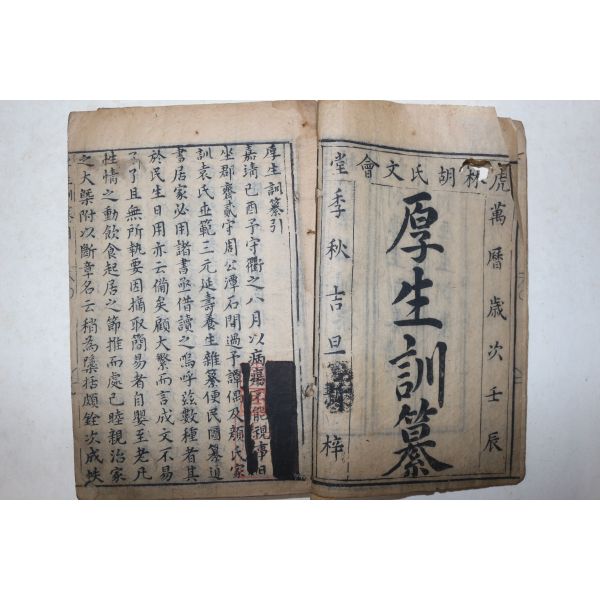 虎林胡氏文會堂
萬曆歲次壬辰
厚生訓纂
季秋吉旦 梓
厚生訓纂引
嘉靖己酉予守衢之八月以病瘍不能視事日
坐郡齋貳守周公潭石間過予譚偶及顏氏家
訓袁氏世範三元延壽養生雜纂便民圖纂迨
書居家必用諸書亟借讀之嗚呼茲數種者其
於民生日用亦云備矣顧大繁而言成文不易
了了且無所執要因摘取簡易者自嬰至老凡
性情之動飲食起居之節推而處己睦親治家
之大槩附以斷章名云稍為檃括頗銓次成帙